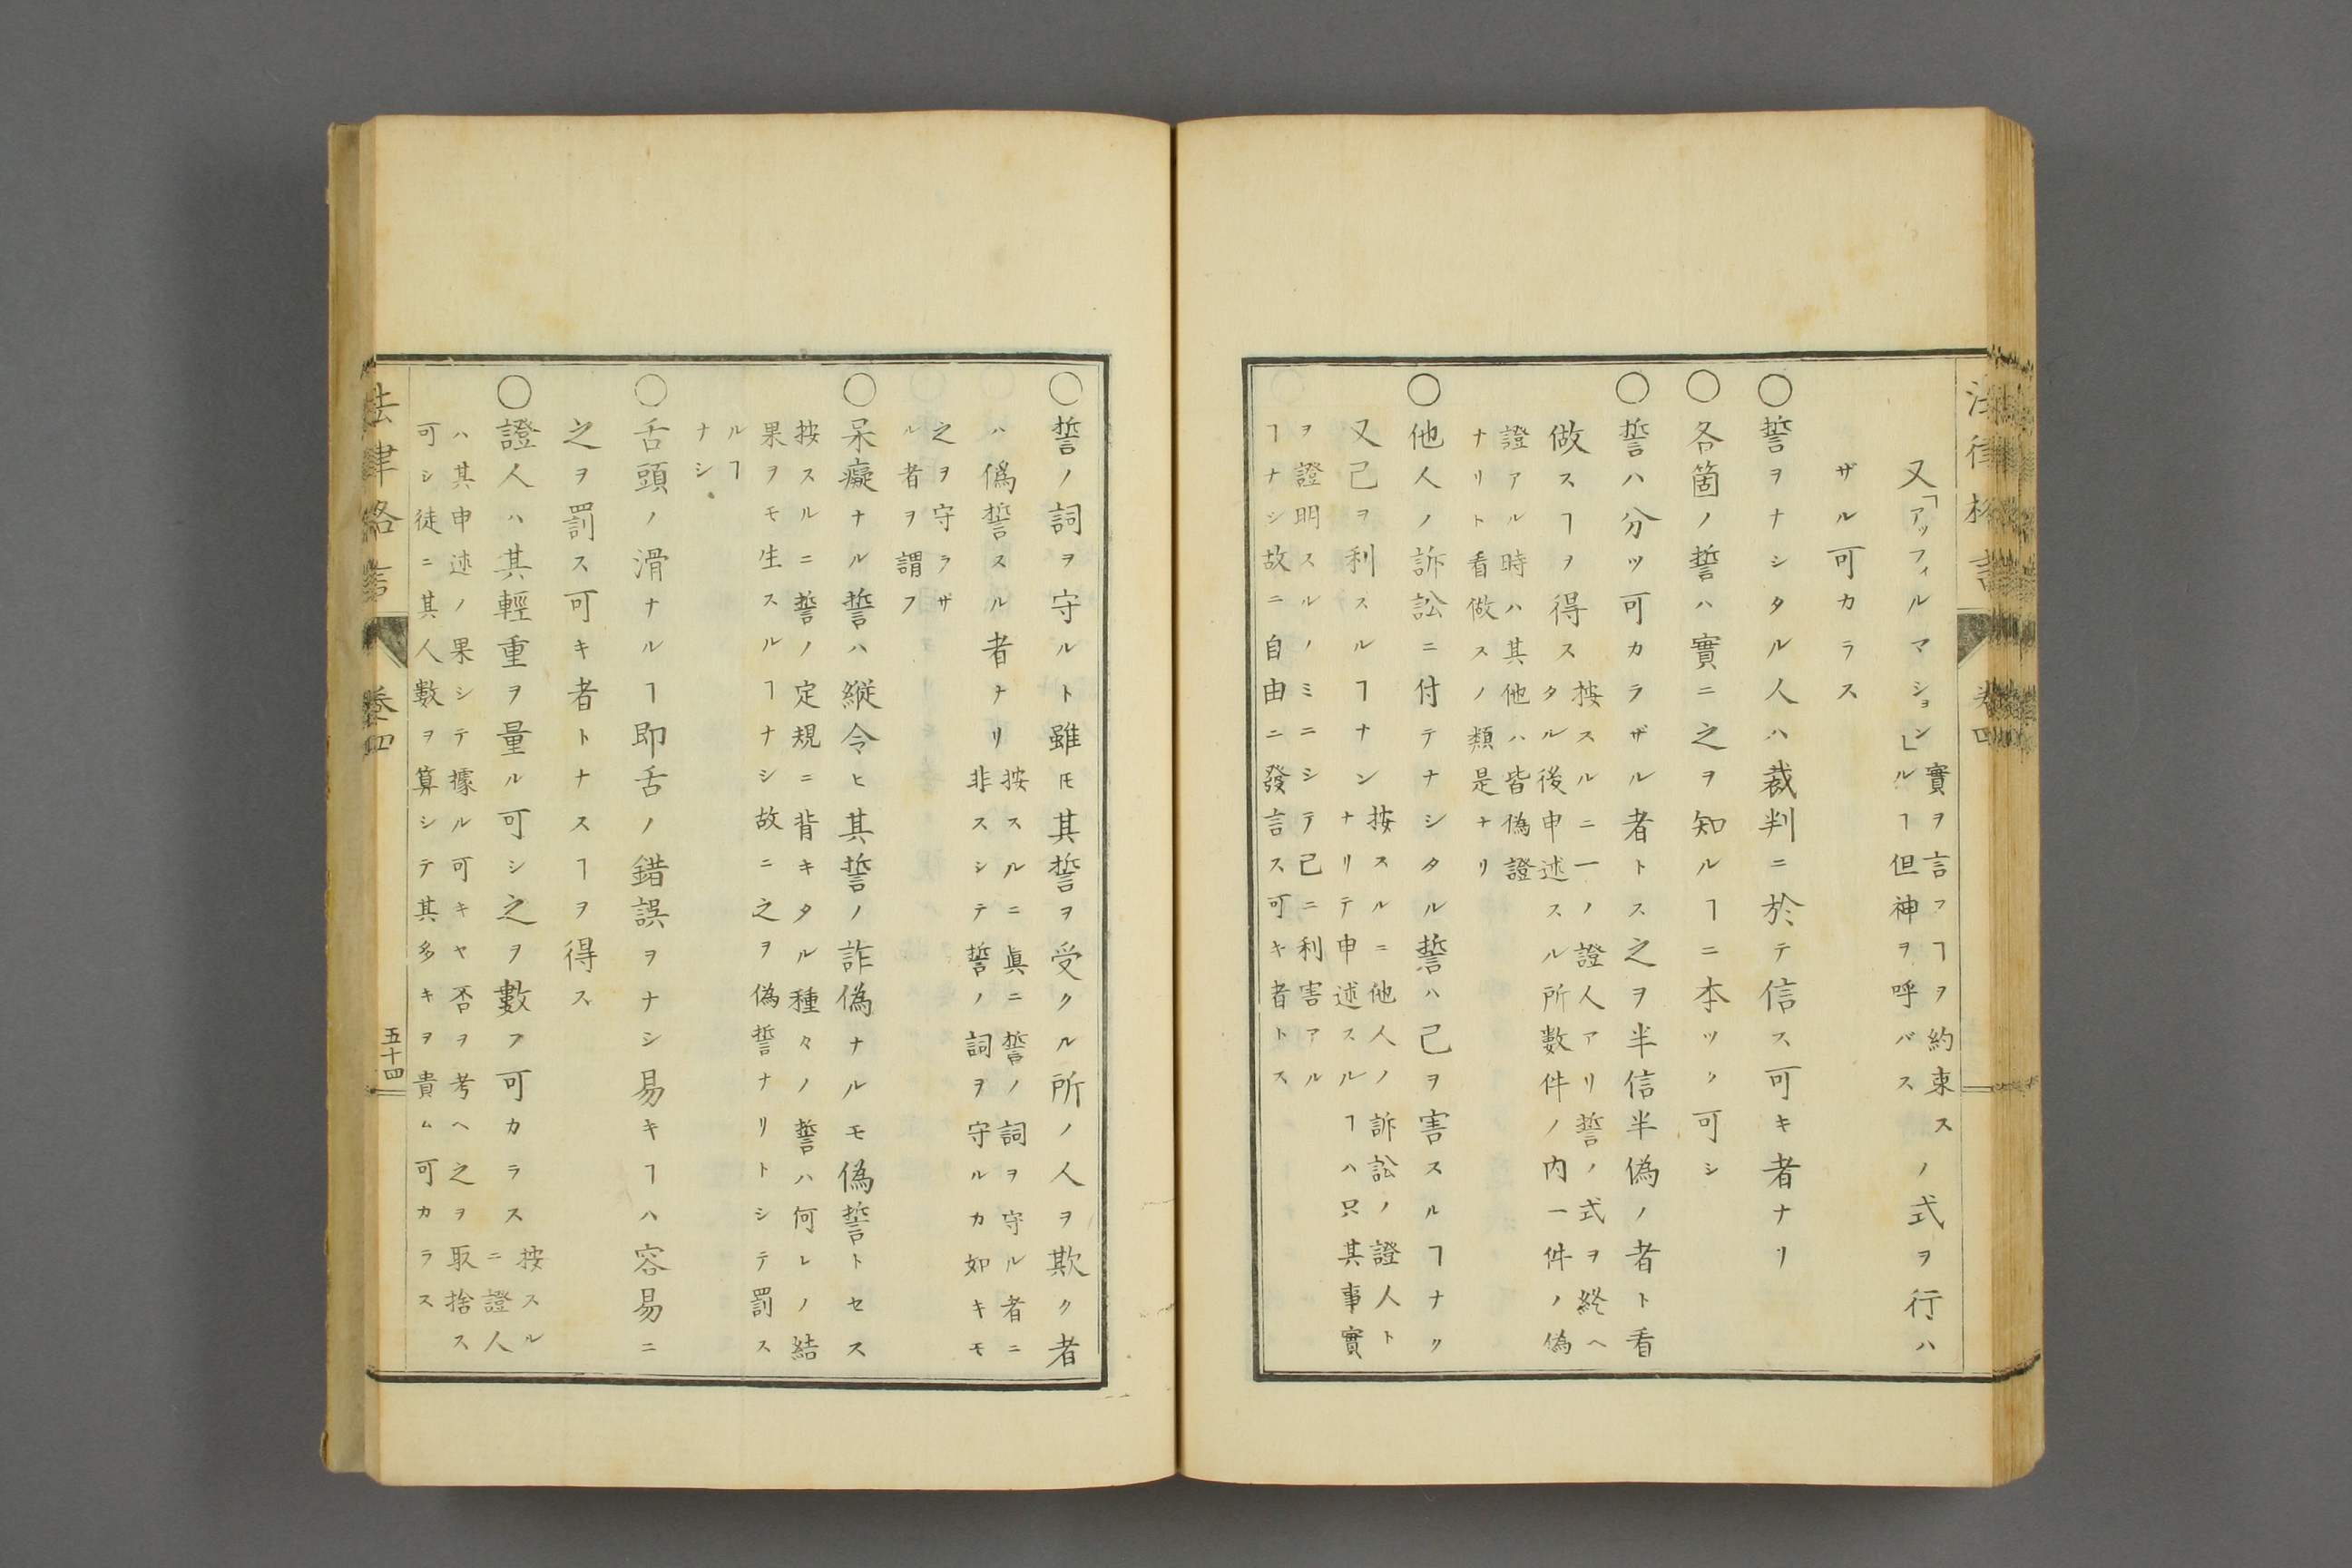 又「アッフィルマション」實ヲ言フヿヲ約束スルヿ但神ヲ呼バスノ式ヲ行ハ
ザル可カラス
○誓ヲナシタル人ハ裁判ニ於テ信ス可キ者ナリ
○各箇ノ誓ハ實ニ之ヲ知ルヿニ本ツク可シ
○誓ハ分ツ可カラザル者トス之ヲ半信半偽ノ者ト看
做スヿヲ得ス
按スルニ一ノ證人アリ誓ノ式ヲ終ヘ
タル後申述スル所數件ノ内一件ノ偽
證アル時ハ其他ハ皆偽證
ナリト看做スノ類是ナリ
○他人ノ訴訟ニ付テナシタル誓ハ己ヲ害スルヿナク
又己ヲ利スルヿナシ
按スルニ他人ノ訴訟ノ證人ト
ナリテ申述スルヿハ只其事實
ヲ證明スルノミニシテ己ニ利害アル
ヿナシ故ニ自由ニ發言ス可キ者トス
○誓ノ詞ヲ守ルト雖モ其誓ヲ受クル所ノ人ヲ欺ク者
ハ僞誓スル者ナリ
按スルニ眞ニ誓ノ詞ヲ守ル者ニ
非スシテ誓ノ詞ヲ守ルカ如キモ
之ヲ守ラザ
ル者ヲ謂フ
○呆癡ナル誓ハ縱令ヒ其誓ノ詐偽ナルモ偽誓トセス
按スルニ誓ノ定規ニ背キタル種々ノ誓ハ何レノ結
果ヲモ生スルヿナシ故ニ之ヲ偽誓ナリトシテ罰ス
ルヿ
ナシ
○舌頭ノ滑ナルヿ即舌ノ錯誤ヲナシ易キヿハ容易ニ
之ヲ罰ス可キ者トナスヿヲ得ス
○證人ハ其輕重ヲ量ル可シ之ヲ數フ可カラス
按スル
ニ證人
ハ其申述ノ果シテ據ル可キヤ否ヲ考ヘ之ヲ取捨ス
可シ徒ニ其人數ヲ算シテ其多キヲ貴ム可カラス
法律格言
卷四
五十四